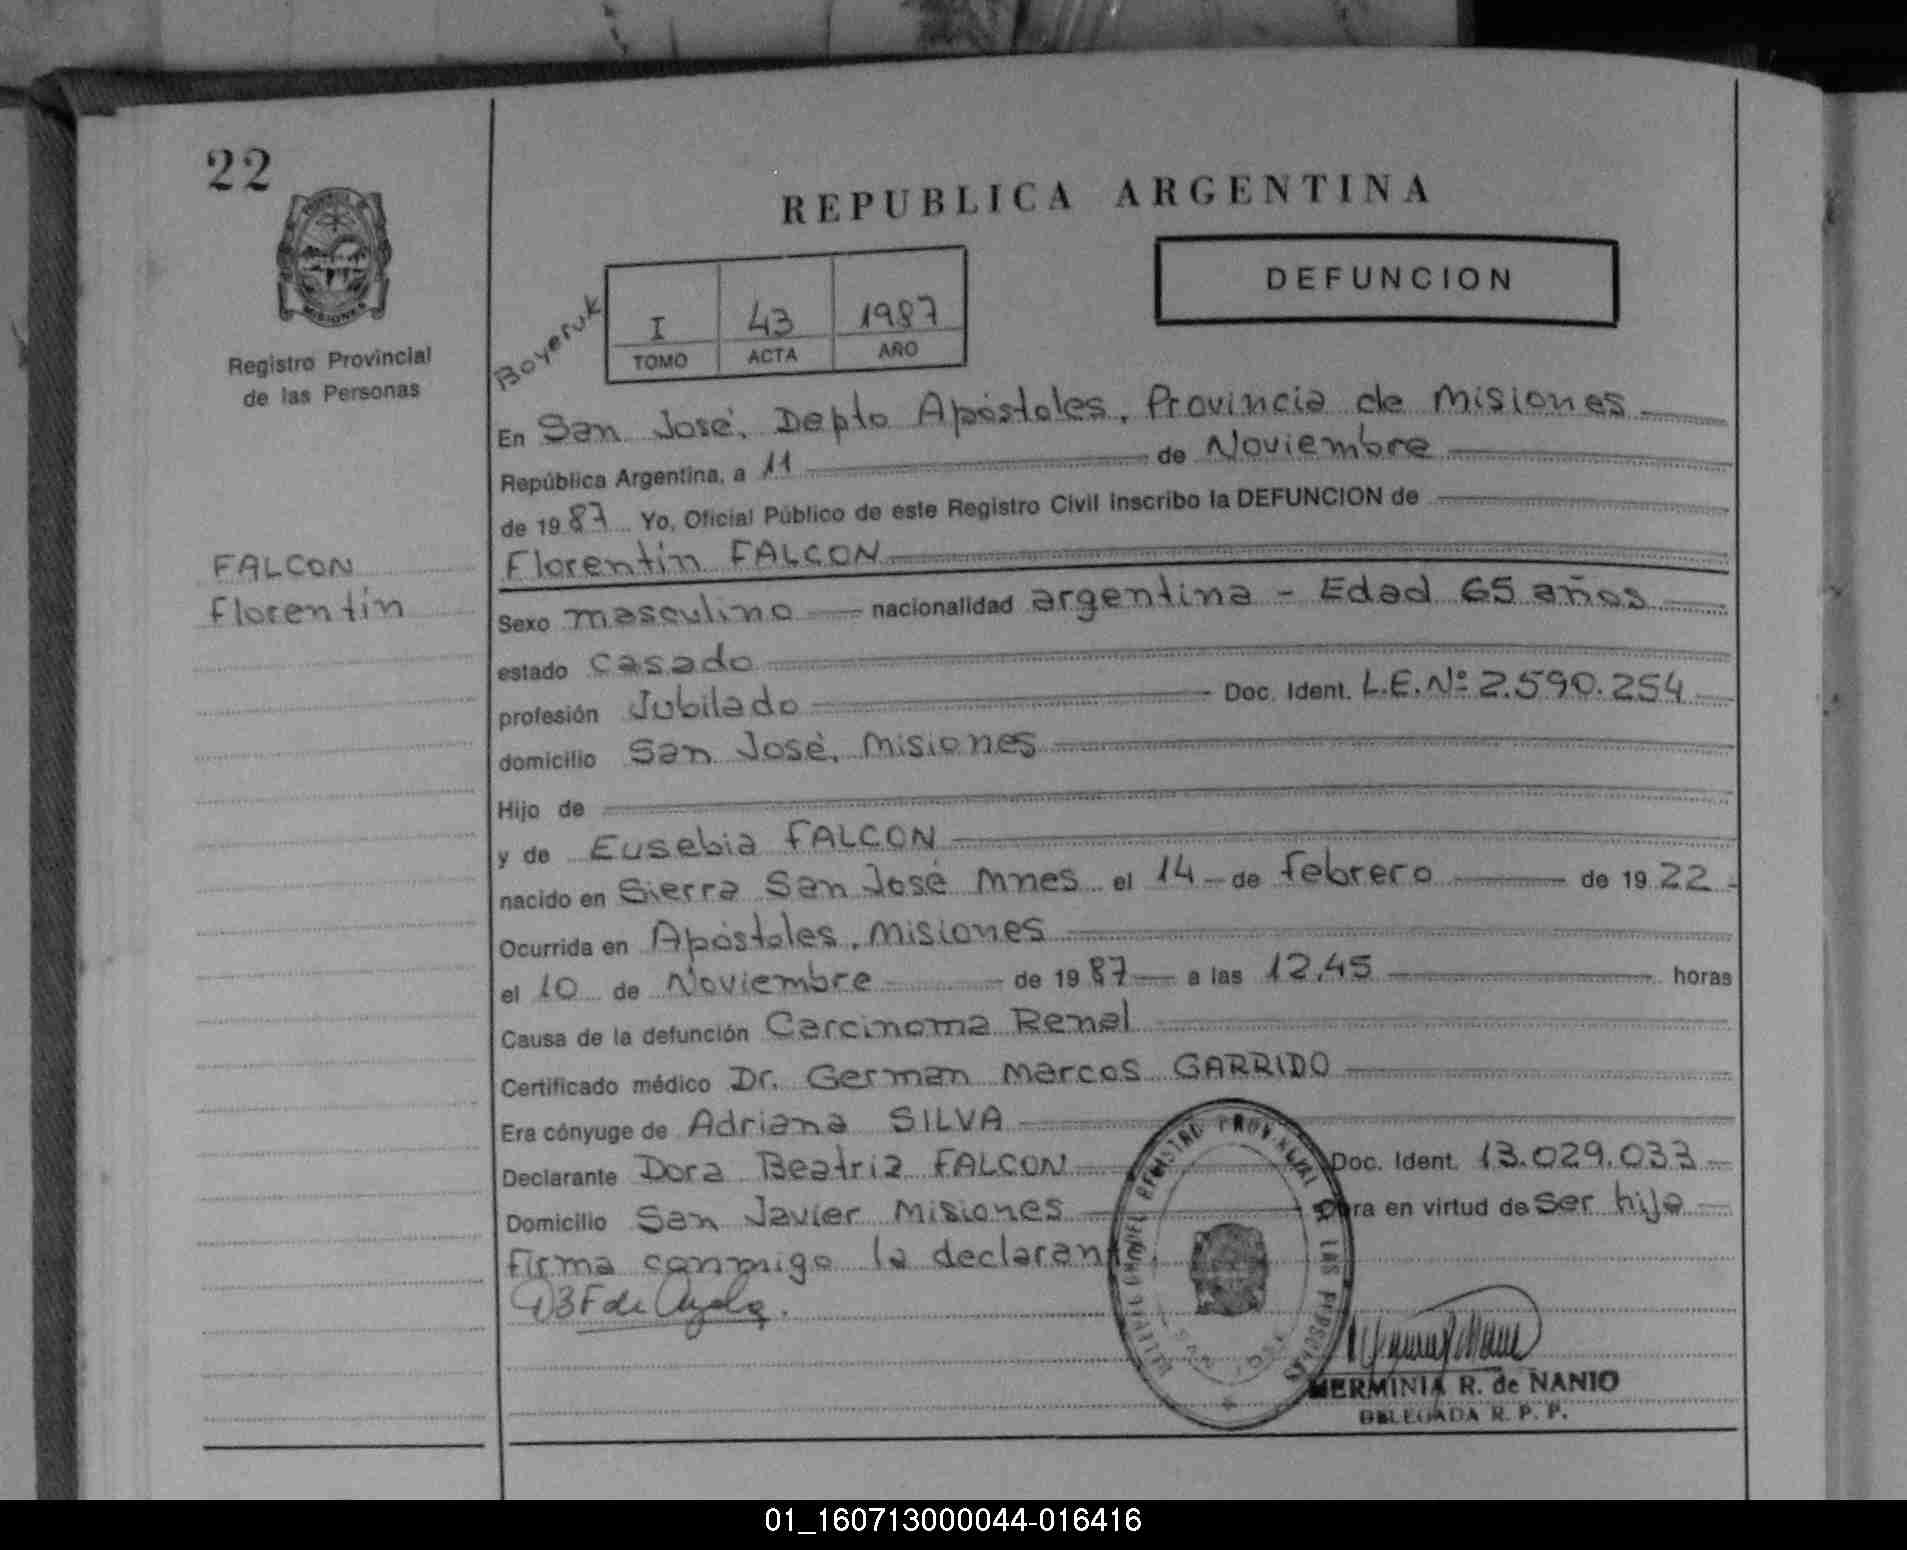 22
REPUBLICA ARGENTINA
MISIONES
Registro Provincial
de las Personas
Boyeruk
I 43 1987
TOMO ACTA AÑO
DEFUNCION
En San José, Depto Apóstoles, Provincia de Misiones
República Argentina, a 11 de Noviembre
de 1987 Yo, Oficial Público de este Registro Civil inscribo la DEFUNCION de
FALCON
Florentín
Florentín FALCON
Sexo masculino nacionalidad argentina - Edad 65 años
estado casado
profesión Jubilado Doc. Ident. L.E.Nº 2.590.254
domicilio San José, Misiones
Hijo de
y de Eusebia FALCON
nacido en Sierra San José Mnes el 14 de febrero de 1922
Ocurrida en Apóstoles, Misiones
el 10 de Noviembre de 1987 a las 12,45 horas
Causa de la defunción Carcinoma Renal
Certificado médico Dr. German Marcos GARRIDO
Era cónyuge de Adriana SILVA
Declarante Dora Beatriz FALCON Doc. Ident. 13.029.033
Domicilio San Javier Misiones Obra en virtud de ser hija
Firma conmigo la declarante.
DBF de Ayala.
REGISTRO PROVINCIAL DE LAS PERSONAS
SAN JOSE
HERMINIA R. de NANIO
DELEGADA R. P. P.
01_160713000044-016416